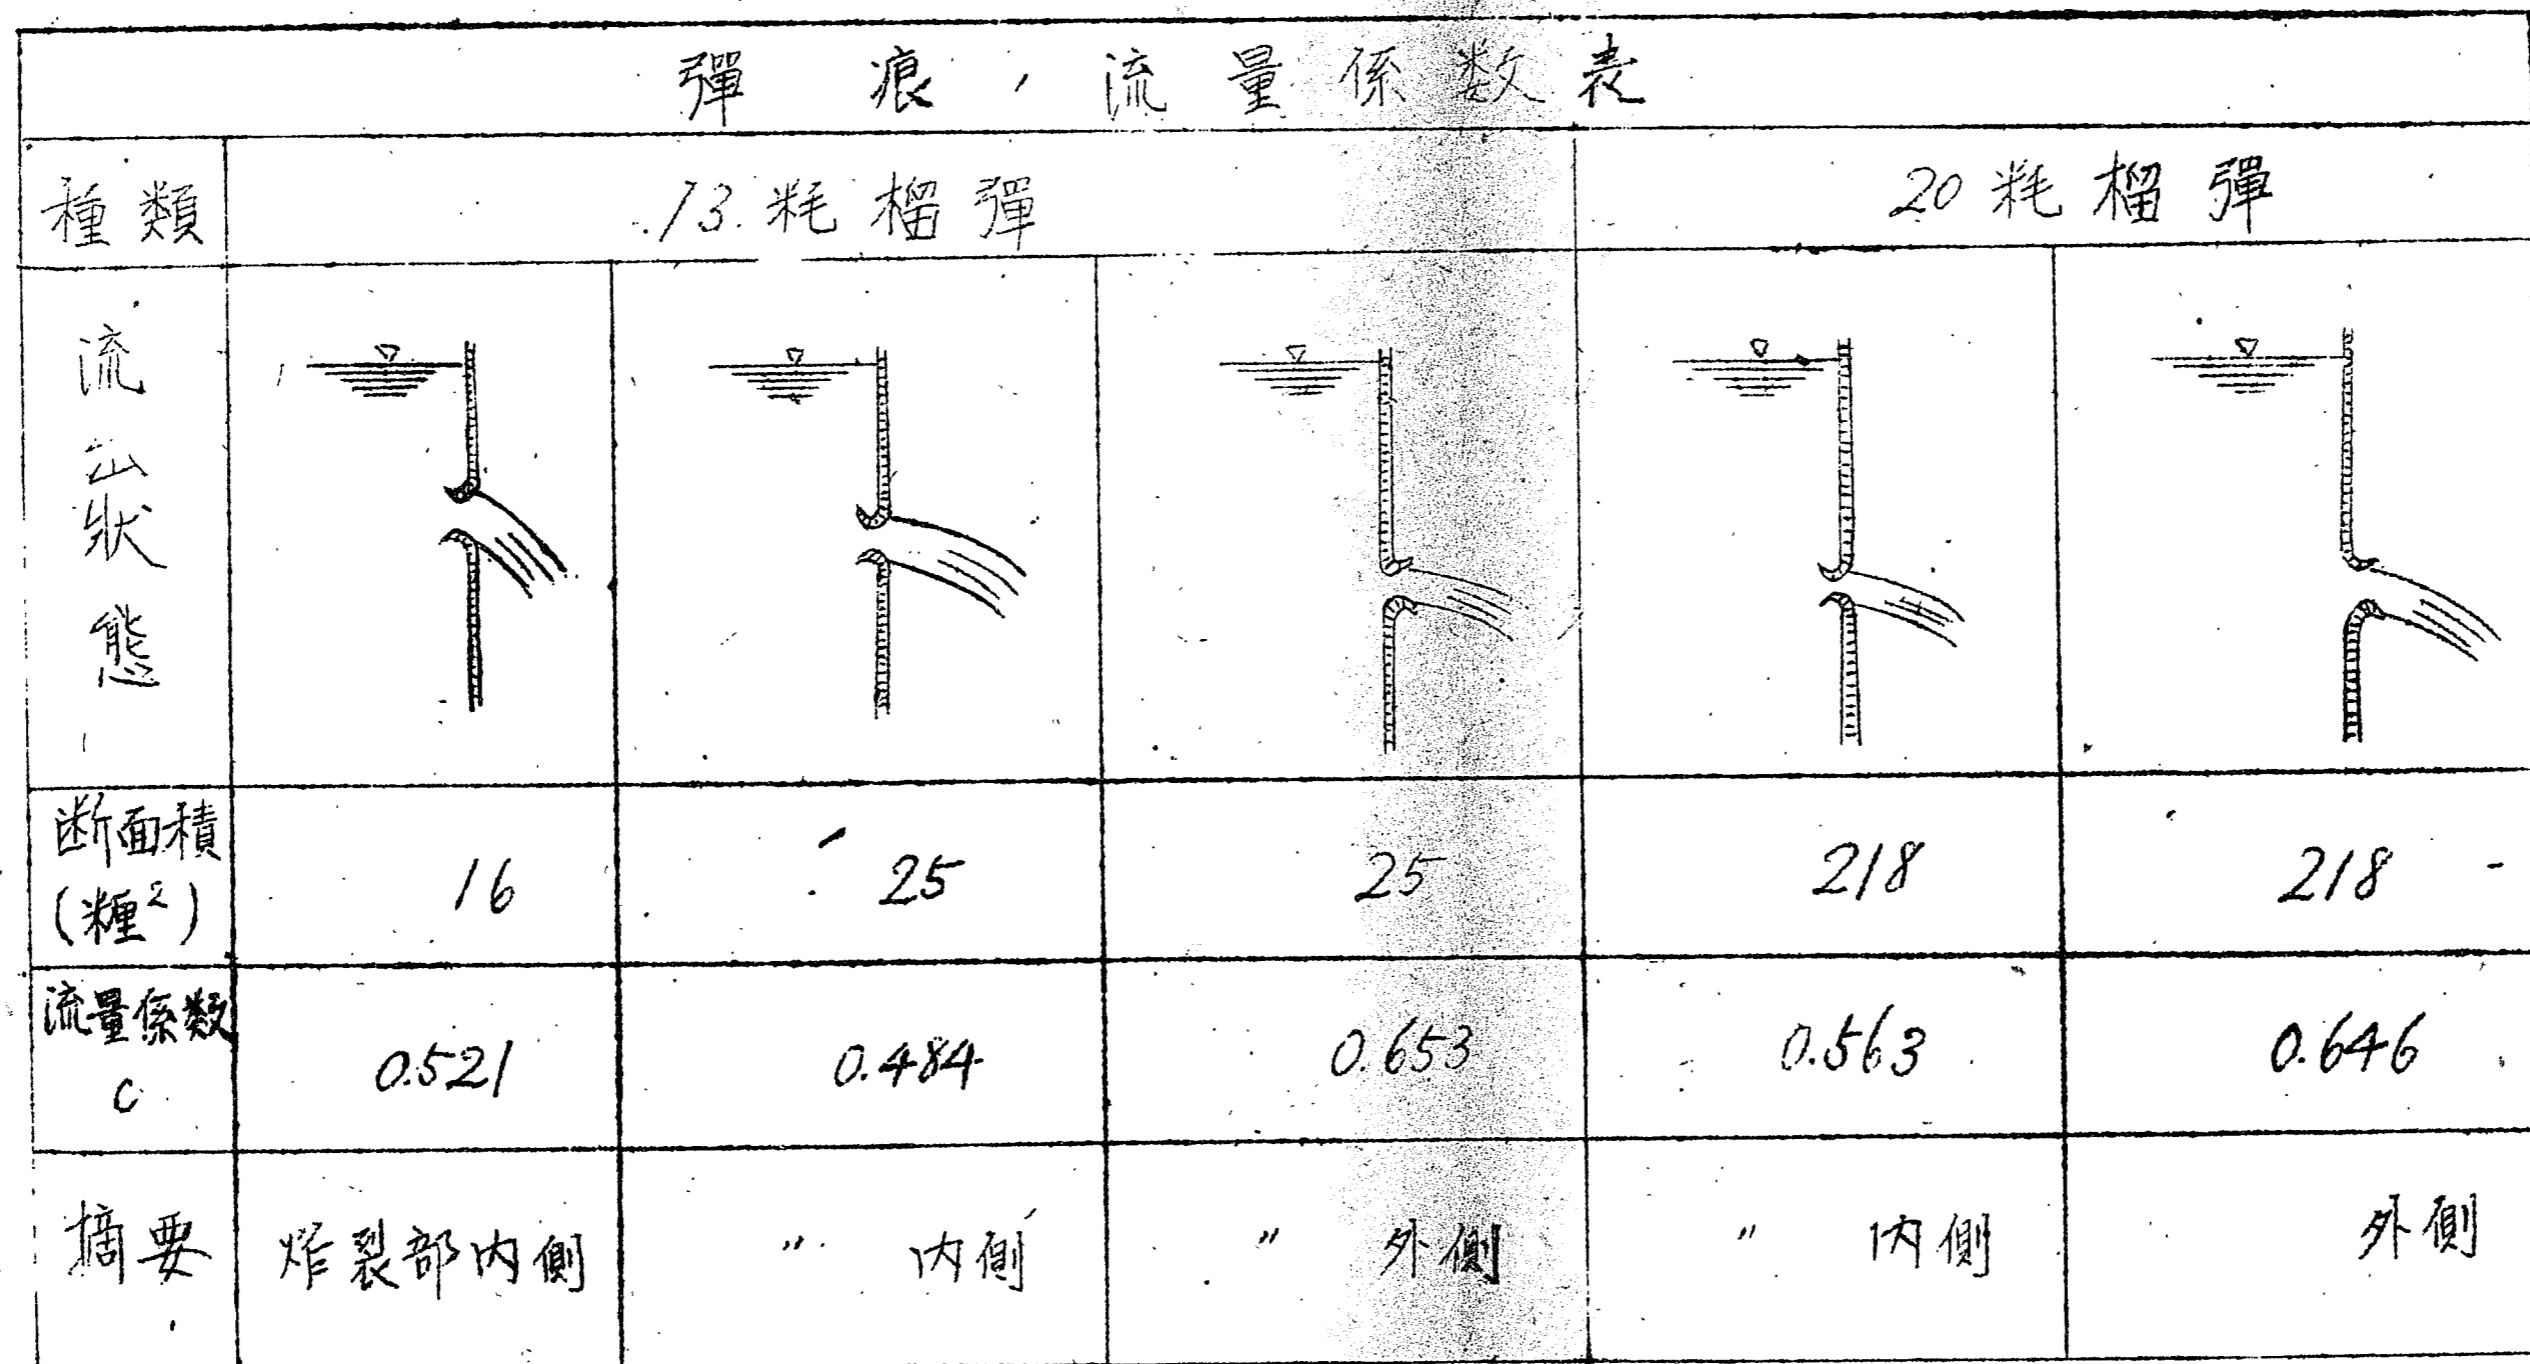 彈痕ノ流量係数表
種類 13粍榴彈 20粍榴彈
流出狀態
断面積(糎²) 16 25 25 218 218
流量係数 C 0.521 0.484 0.653 0.563 0.646
摘要 炸裂部内側 〃 内側 〃 外側 〃 内側 外側